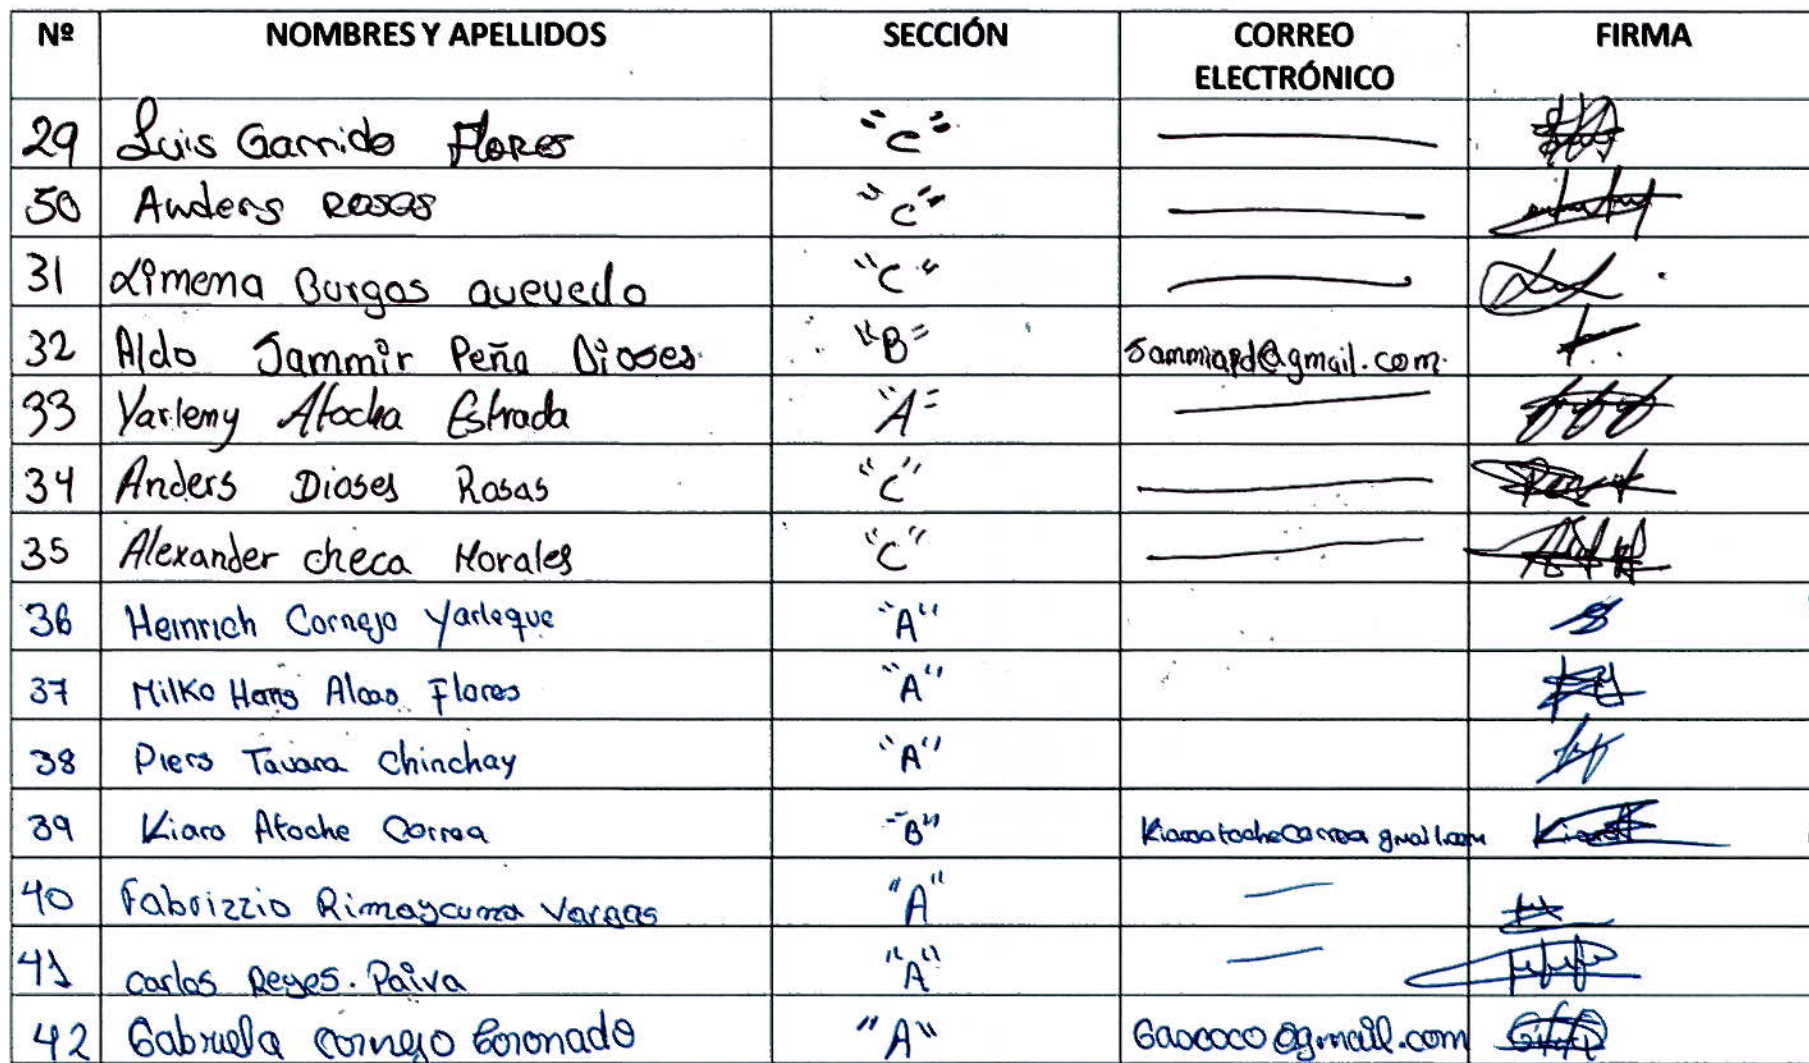 Nº NOMBRES Y APELLIDOS SECCIÓN CORREO ELECTRÓNICO FIRMA
29 Luis Garrido Flores "C"
30 Anders Rosas "C"
31 Ximena Burgos quevedo "C"
32 Aldo Jammir Peña Dioses "B" Jammiapd@gmail.com
33 Yarlemy Atocha Estrada "A"
34 Anders Dioses Rosas "C"
35 Alexander checa Morales "C"
36 Heinrich Cornejo Yarleque "A"
37 Milko Hans Flores "A"
38 Piers Tavara Chinchay "A"
39 Kiara Atoche Correa "B"
40 Fabrizzio Rimaycuna Vargas "A"
41 Carlos Reyes. Paiva "A"
42 Gabriela Cornejo Coronado "A"